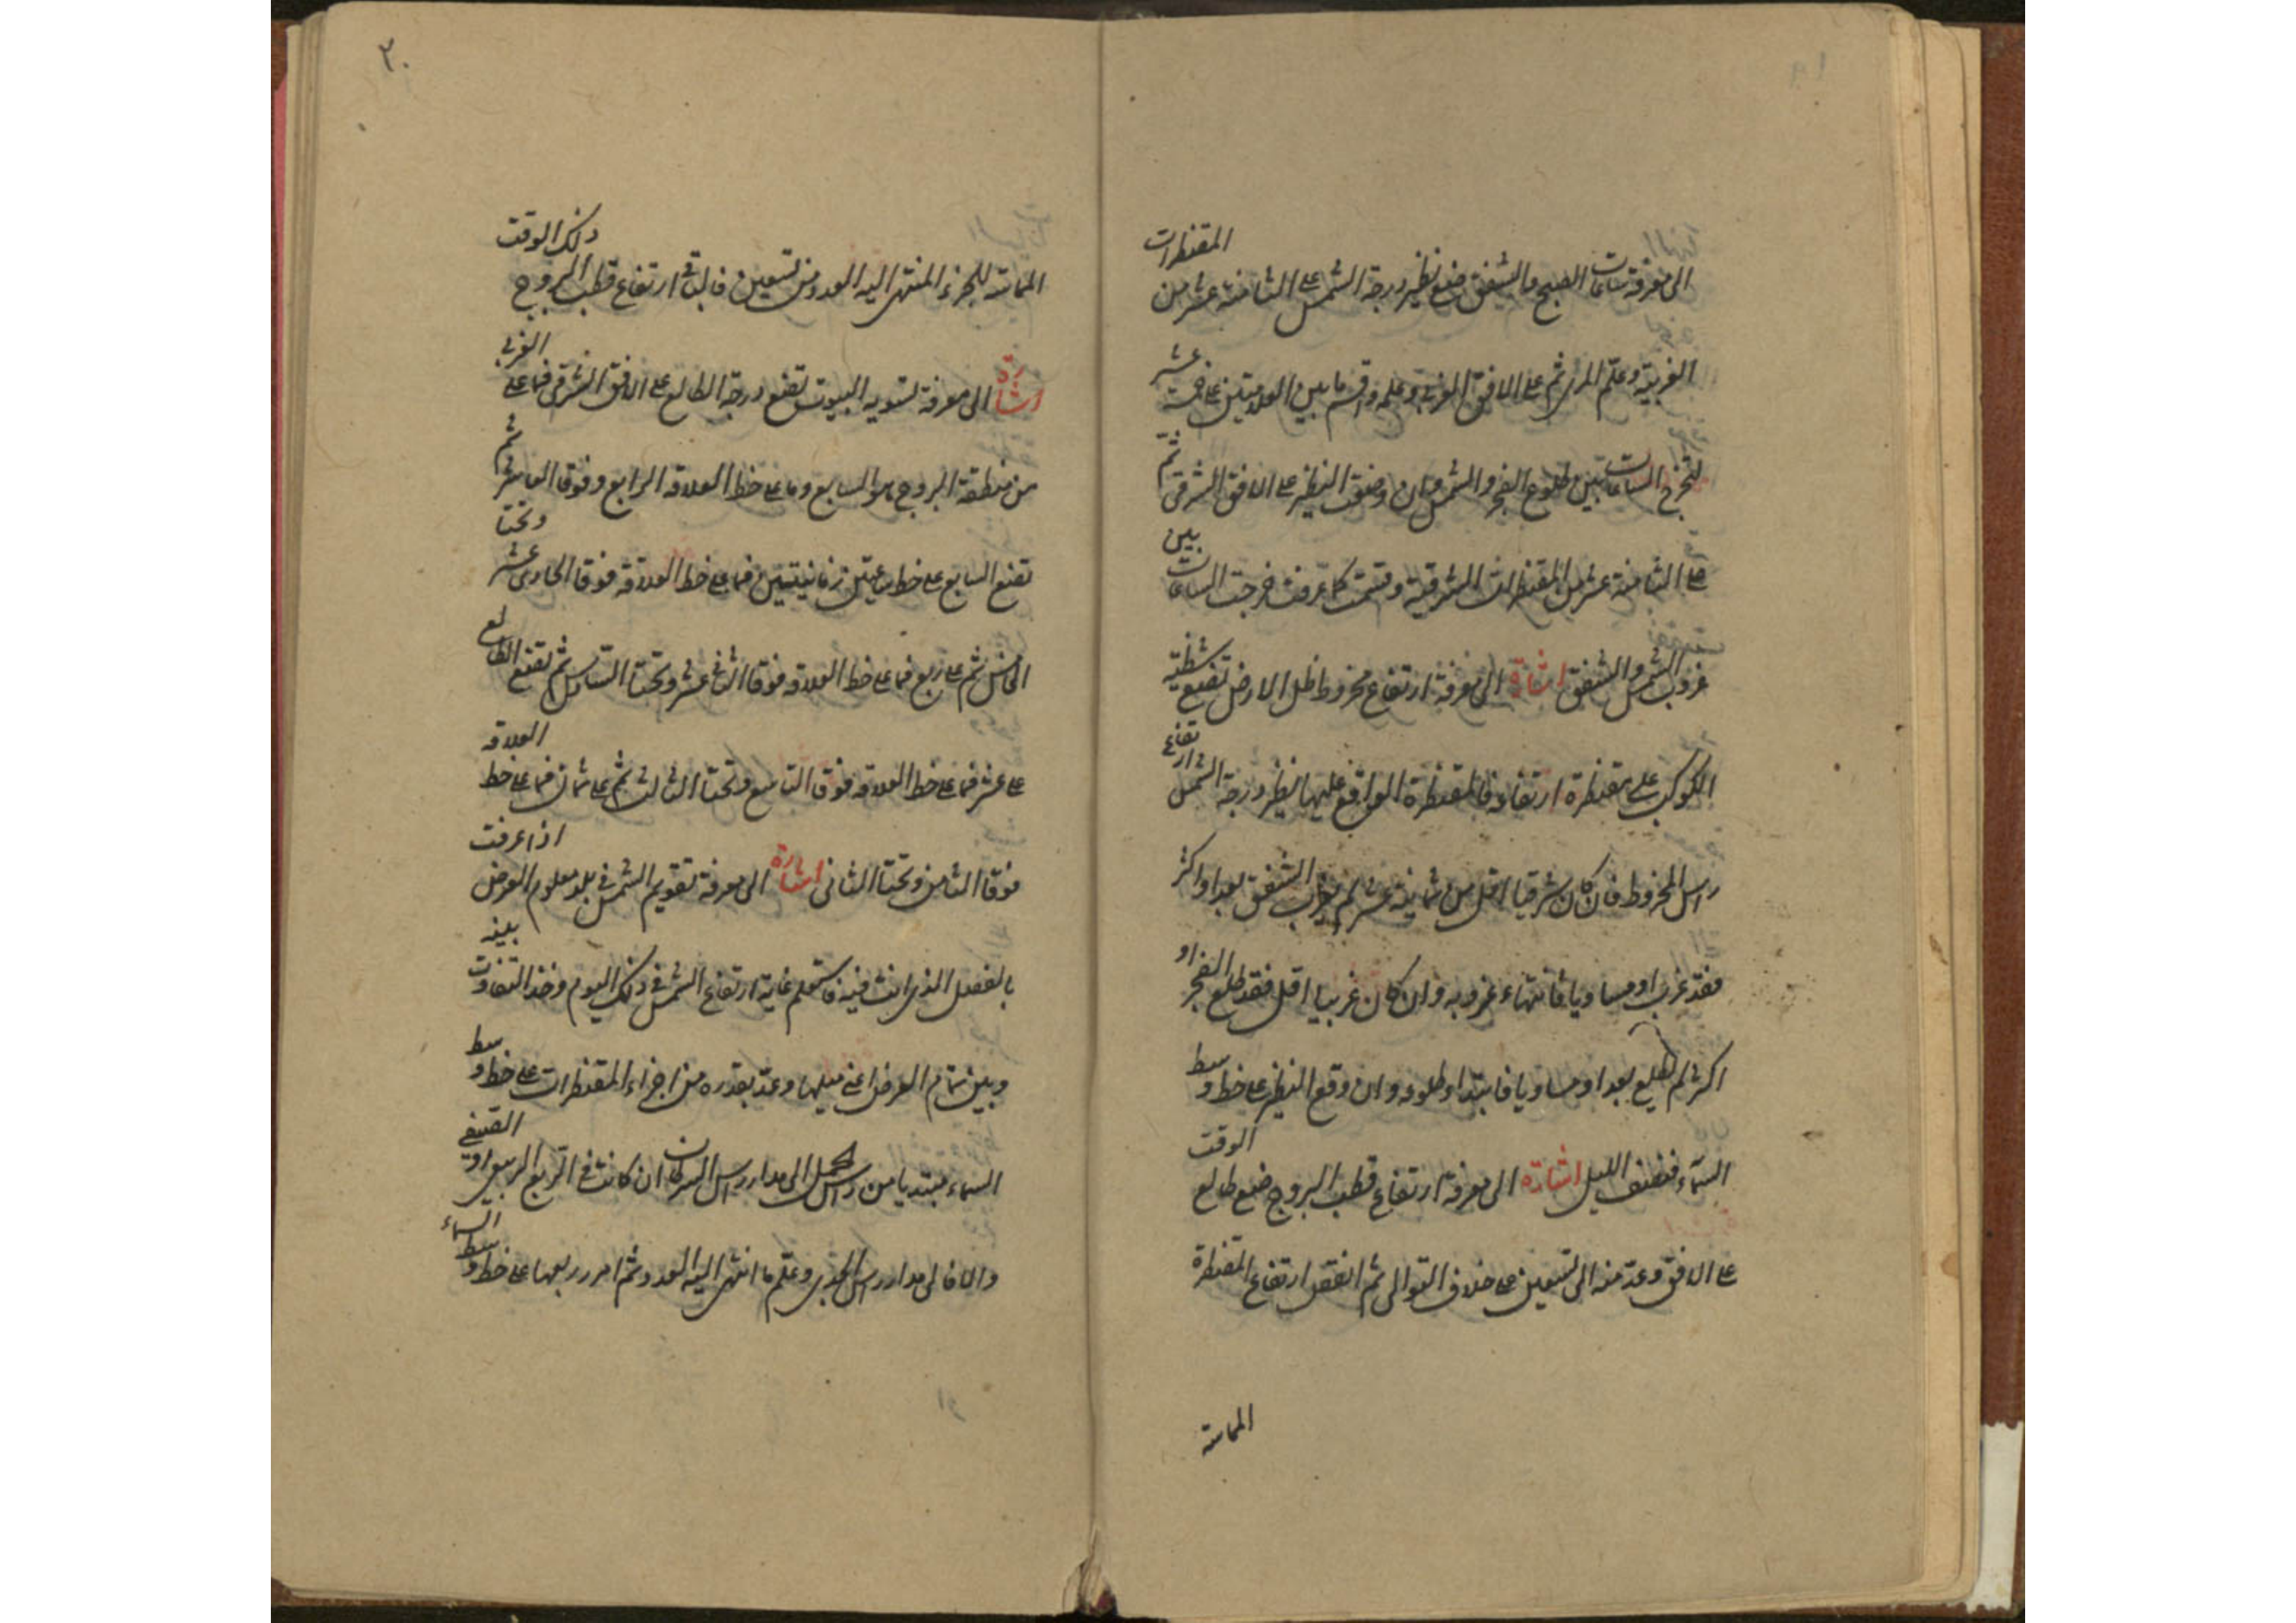 الى معرفة ساعات الصبح والشفق ضع نظير درجة الشمس على الثامنة عشر من المقنطرات
الغربية وعلّم المرى ثم على الافق الغربي وعلمه واقسم ما بين العلامتين على خمسة عشر
لتخرج الساعات بين طلوع الفجر والشمس وان وضعت النظير على الافق الشرقى ثم
على الثامنة عشر من المقنطرات الشرقية وقسمت كما عرفت خرجت الساعات بين
غروب الشمس والشفق اشارة الى معرفة ارتفاع مخروط ظل الارض تضع شظية
الكوكب على مقنطرة ارتفاعه فالمقنطرة الواقع عليها نظير درجة الشمس ارتفاع
راس المخروط فان كان شرقيا اقل من ثمانية عشر لم يغرب الشفق بعد او اكثر
فقد غرب او مساويا فانتهاء غروبه وان كان غربيا اقل فقد طلع الفجر او
اكثر لم يطلع بعد او مساويا فابتداء طلوعه وان وقع النظير على خط وسط
السمآء فنصف الليل اشارة الى معرفة ارتفاع قطب البروج ضع طالع الوقت
على الافق وعدّ منه الى تسعين على خلاف التوالى ثم انقص ارتفاع المقنطرة
المماسة
٢٠
المماسة للجزء المنتهى اليه العدد من تسعين فالباقى ارتفاع قطب البروج ذلك الوقت
اشارة الى معرفة تسوية البيوت تضع درجة الطالع على الافق الشرقى فما على الغربى
من منطقة البروج هو السابع وما على خط العلاقة الرابع وفوقا العاشر ثم
تضع السابع على خط ساعتين زمانيتين فما على خط العلاقة فوقا الحادى عشر وتحتا
الخامس ثم على اربع فما على خط العلاقة فوقا الثانى عشر وتحتا السادس ثم تضع الطالع
على عشر فما على خط العلاقة فوقا التاسع وتحتا الثالث ثم على ثمان فما على خط العلاقة
فوقا الثامن وتحتا الثانى اشارة الى معرفة تقويم الشمس فى بلد معلوم العرض اذا عرفت
بالفصل الذى انت فيه فاستعلم غاية ارتفاع الشمس فى ذلك اليوم وخذ التفاوت بينه
وبين تمام العرض اعنى ميلها وعدّ بقدره من اجزاء المقنطرات على خط وسط
السماء مبتديا من راس الحمل الى مدار راس السرطان ان كانت فى الربع الربيعى او الصيفى
والا فالى مدار راس الجدى وعلّم ما انتهى اليه العدد ثم امرر ربعها على خط وسط السماء